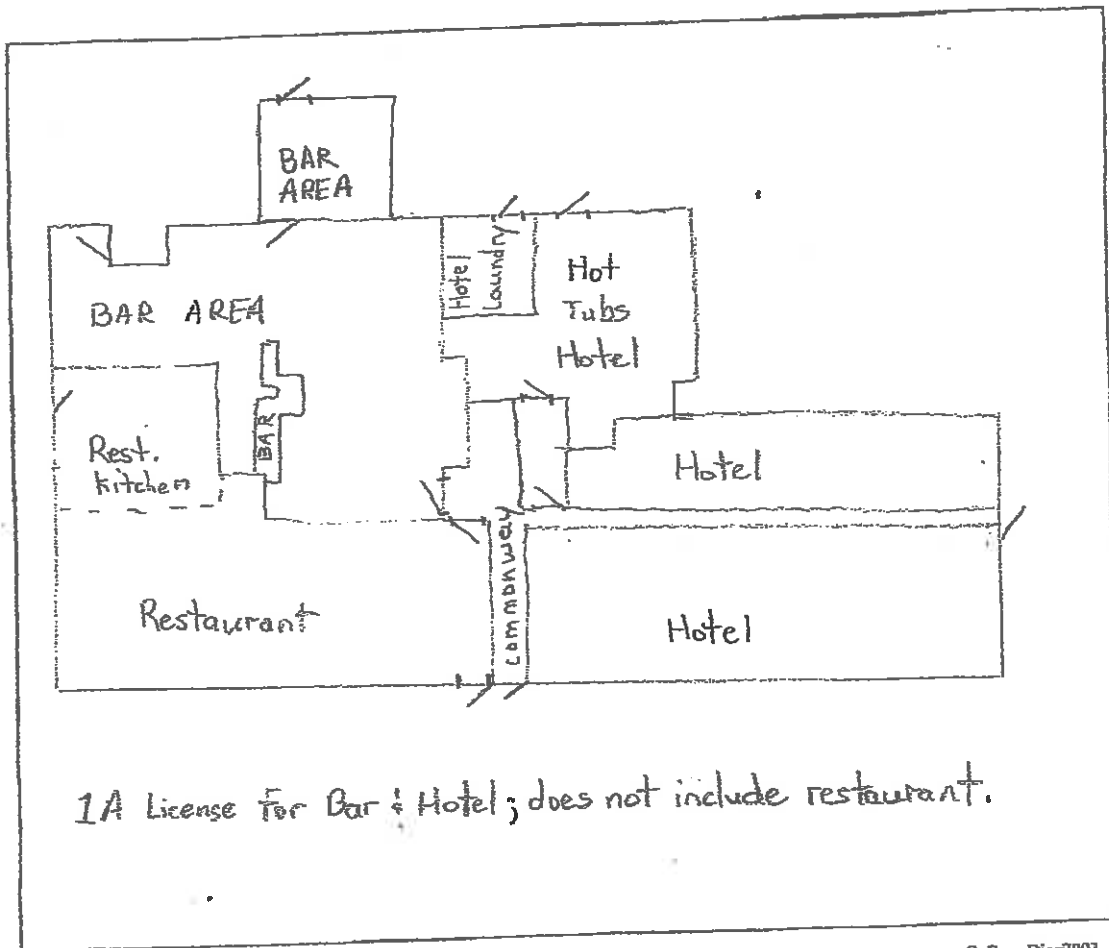 BAR
AREA
BAR AREA
Hotel
Laundry
Hot
Tubs
Hotel
BAR
Rest.
Kitchen
Hotel
Commonway
Restaurant
Hotel
1A License For Bar & Hotel; does not include restaurant.